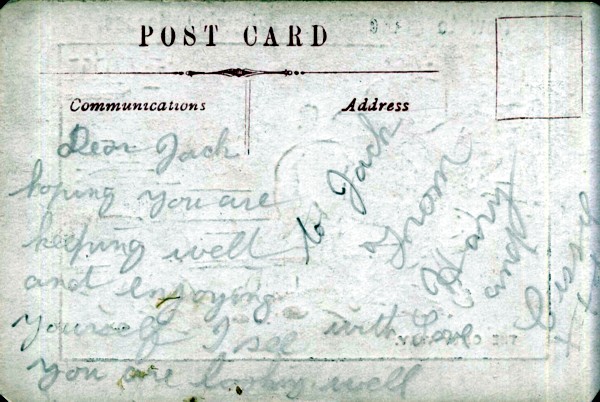 POST CARD
Communications
Address
Dear Jack
hoping you are
keeping well
and enjoying
yourself I see
you are looking well
to Jack
from
Hary
and
Cissie
with love